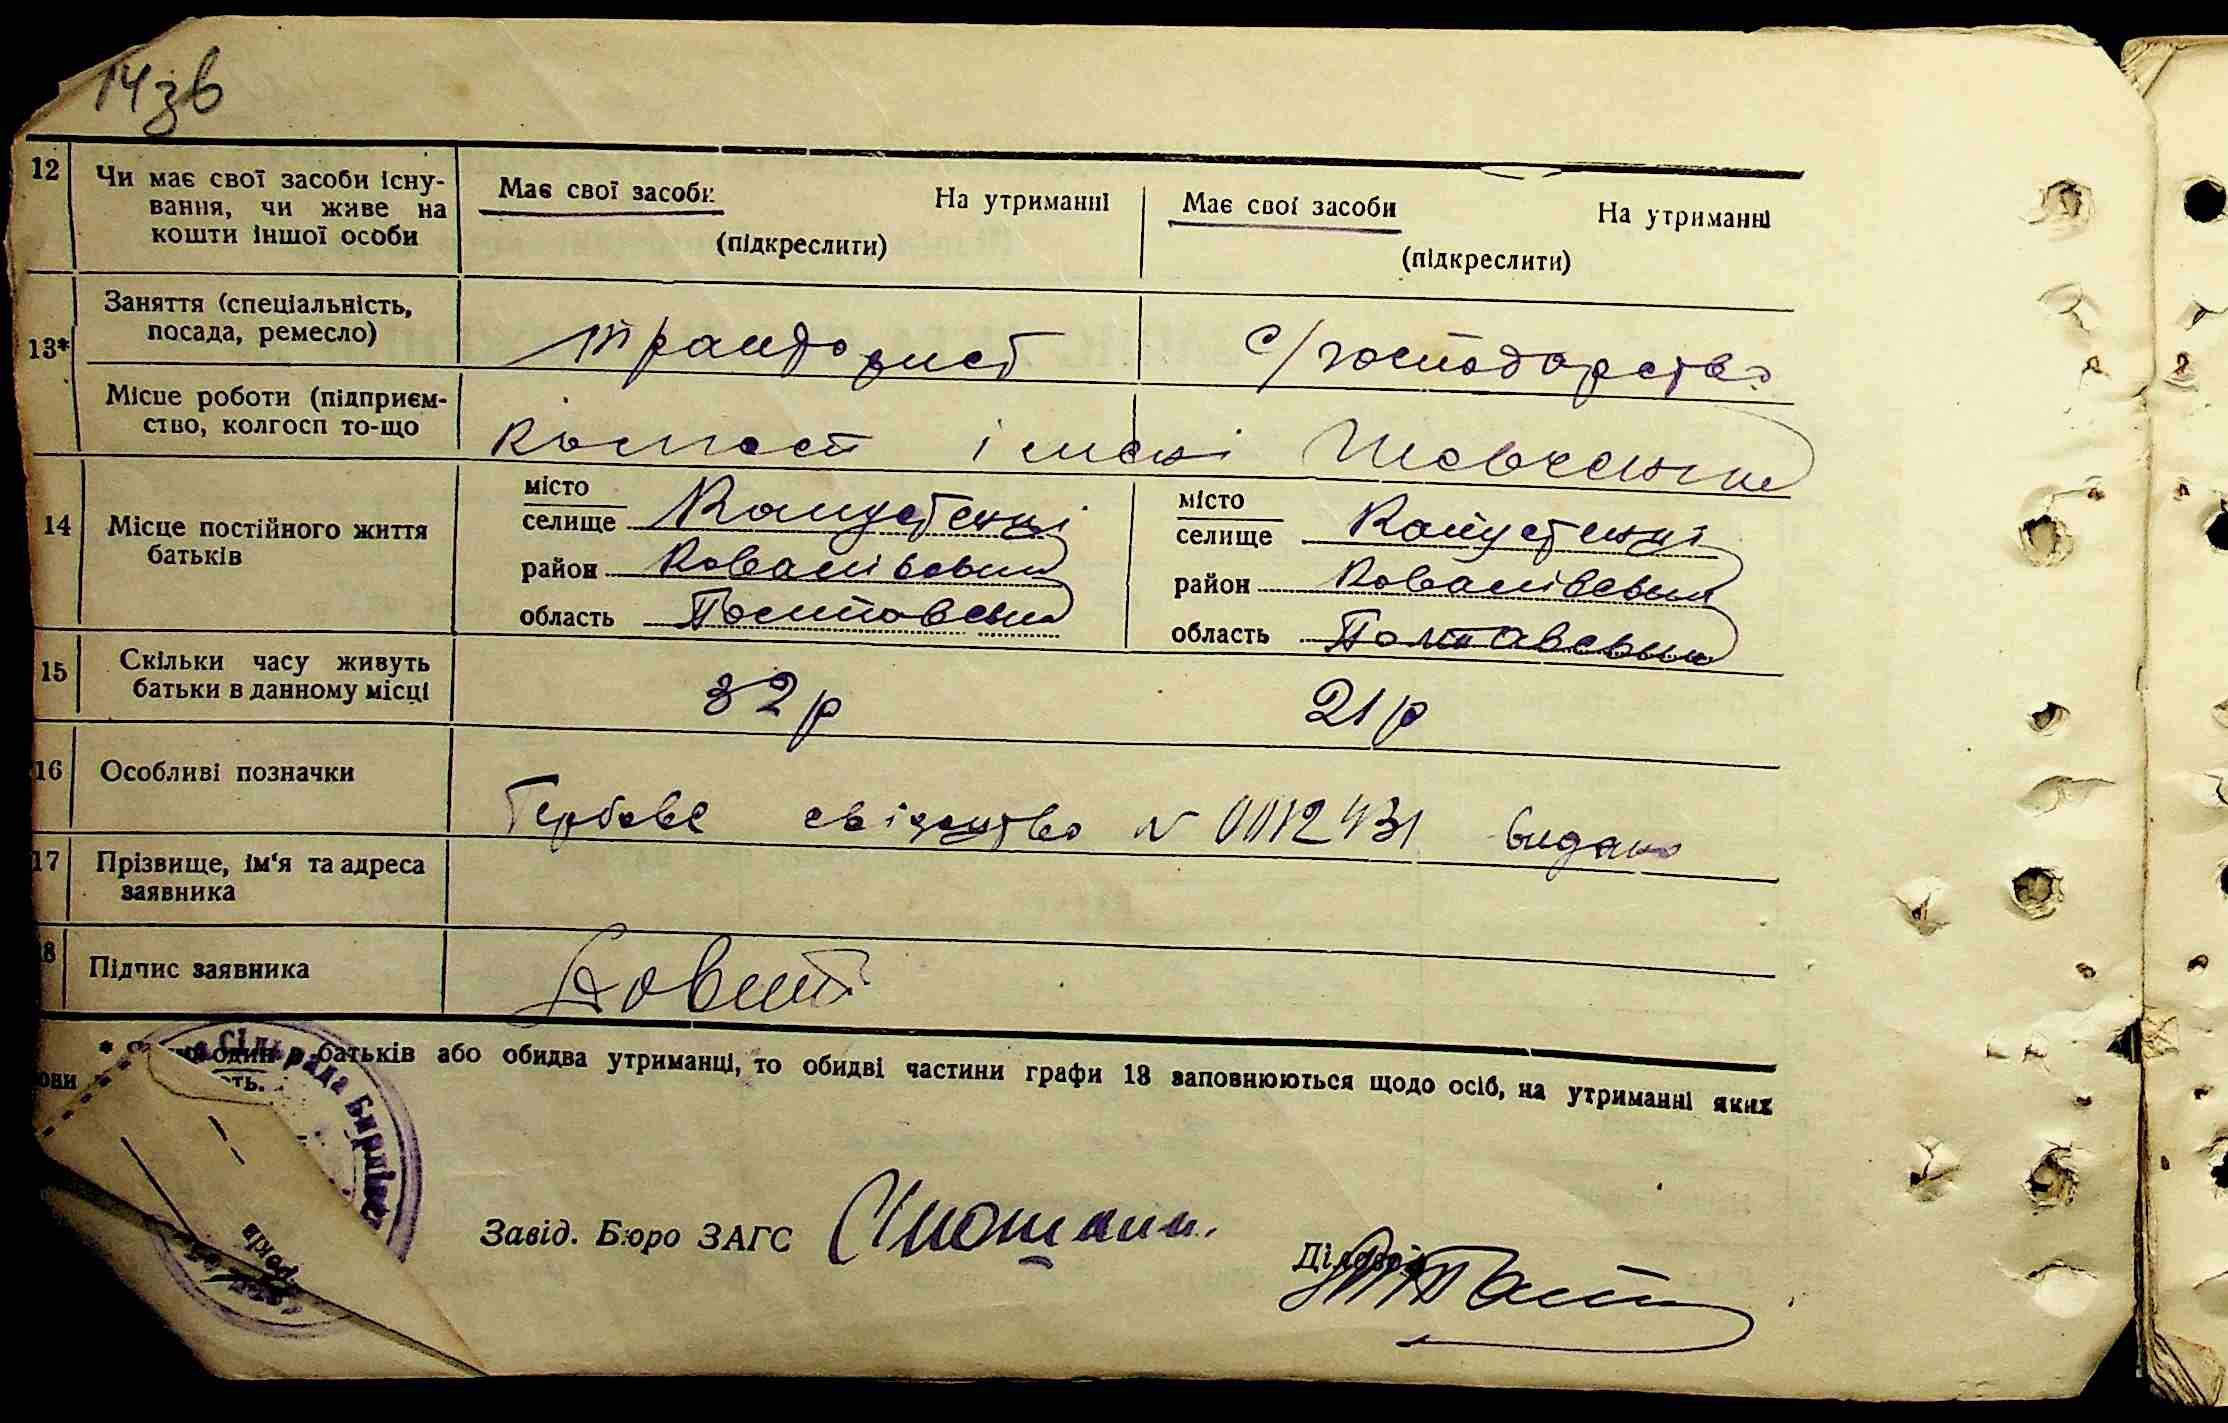 14 зв
12 Чи має свої засоби існу-
вання, чи живе на
кошти іншої особи
Має свої засоби На утриманні
(підкреслити)
Має свої засоби На утриманні
(підкреслити)
13*
Заняття (спеціальність,
посада, ремесло)
тракторист
с/господарство
Місце роботи (підприєм-
ство, колгосп то-що
імені Шевченка
14 Місце постійного життя
батьків
місто
селище Капустенці
район Ковалівський
область Полтавська
місто
селище Капустенці
район Ковалівський
область Полтавська
15 Скільки часу живуть
батьки в данному місці
32 р
21 р
16 Особливі позначки
Гербове свідоцтво N 0012431 видано
17 Прізвище, ім'я та адреса
заявника
18 Підпис заявника
* один з батьків або обидва утриманці, то обидві частини графи 13 заповнюються щодо осіб, на утриманні яких
сільрада
Завід. Бюро ЗАГС
Діловод